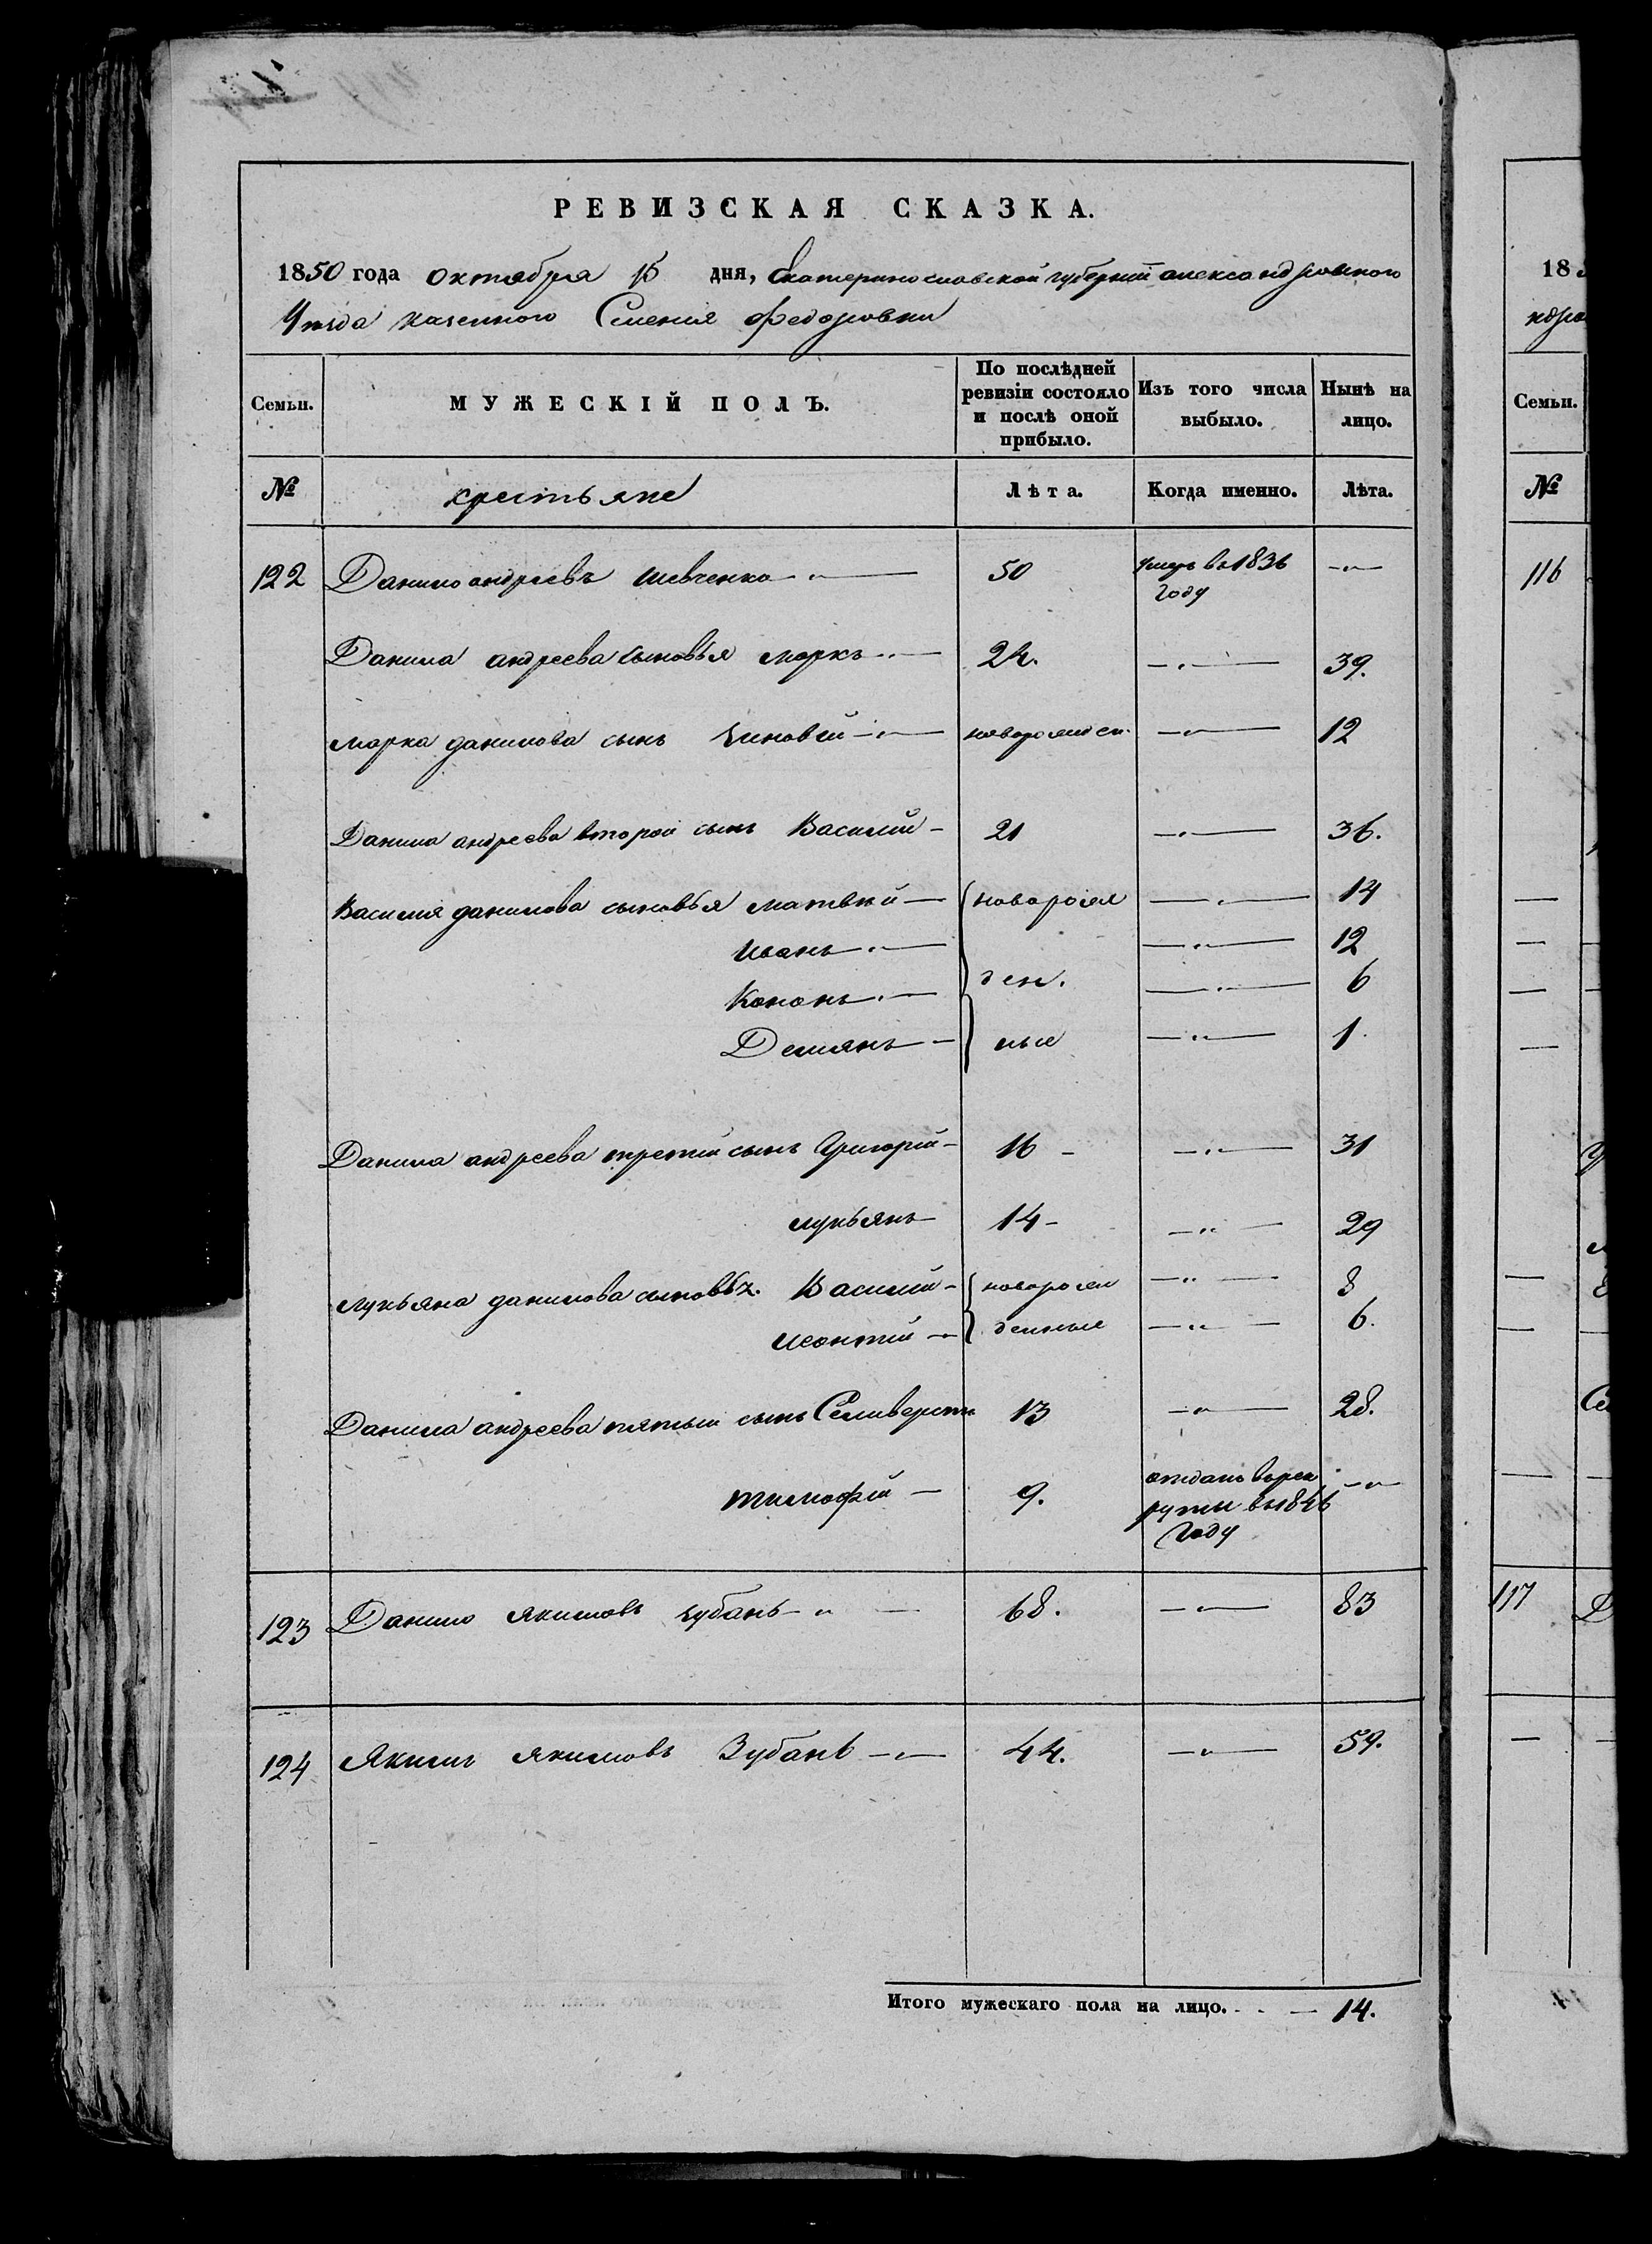 РЕВИЗСКАЯ СКАЗКА.
1850 года октября 15 дня, Екатеринославской губернии александровского
Уезда казенного Селения Федоровки
Семьи.
МУЖЕСКІЙ ПОЛЪ.
По послѣдней ревизіи состояло и послѣ оной прибыло.
Изъ того числа выбыло.
Нынѣ на лицо.
№ крестьяне Лѣта. Когда именно. Лѣта.
122 Данило андреевъ шевченко 50 умеръ въ 1836 году
Данила андреева сыновья маркъ 24. 39.
марка данилова сынъ Зиновей новорожден. 12
Данила андреева второй сынъ Василий 21 36.
Василия данилова сыновья матвей новорож 14
иванъ 12
Кононъ ден. 6
Демянъ ные 1
Данила андреева третий сынъ Григорий 16 31
лукьянъ 14 29
лукьяна данилова сыновья Василий новорож 8
леонтий денные 6.
Данила андреева пятый сынъ Селиверстъ 13 28.
тимофей 9. отданъ в рек
руты въ 1846
году
123 Данило якимовъ зубань 68. 83
124 Якимъ якимовъ Зубань 44. 59.
Итого мужескаго пола на лицо. 14.
18
Семьи.
№
116
117